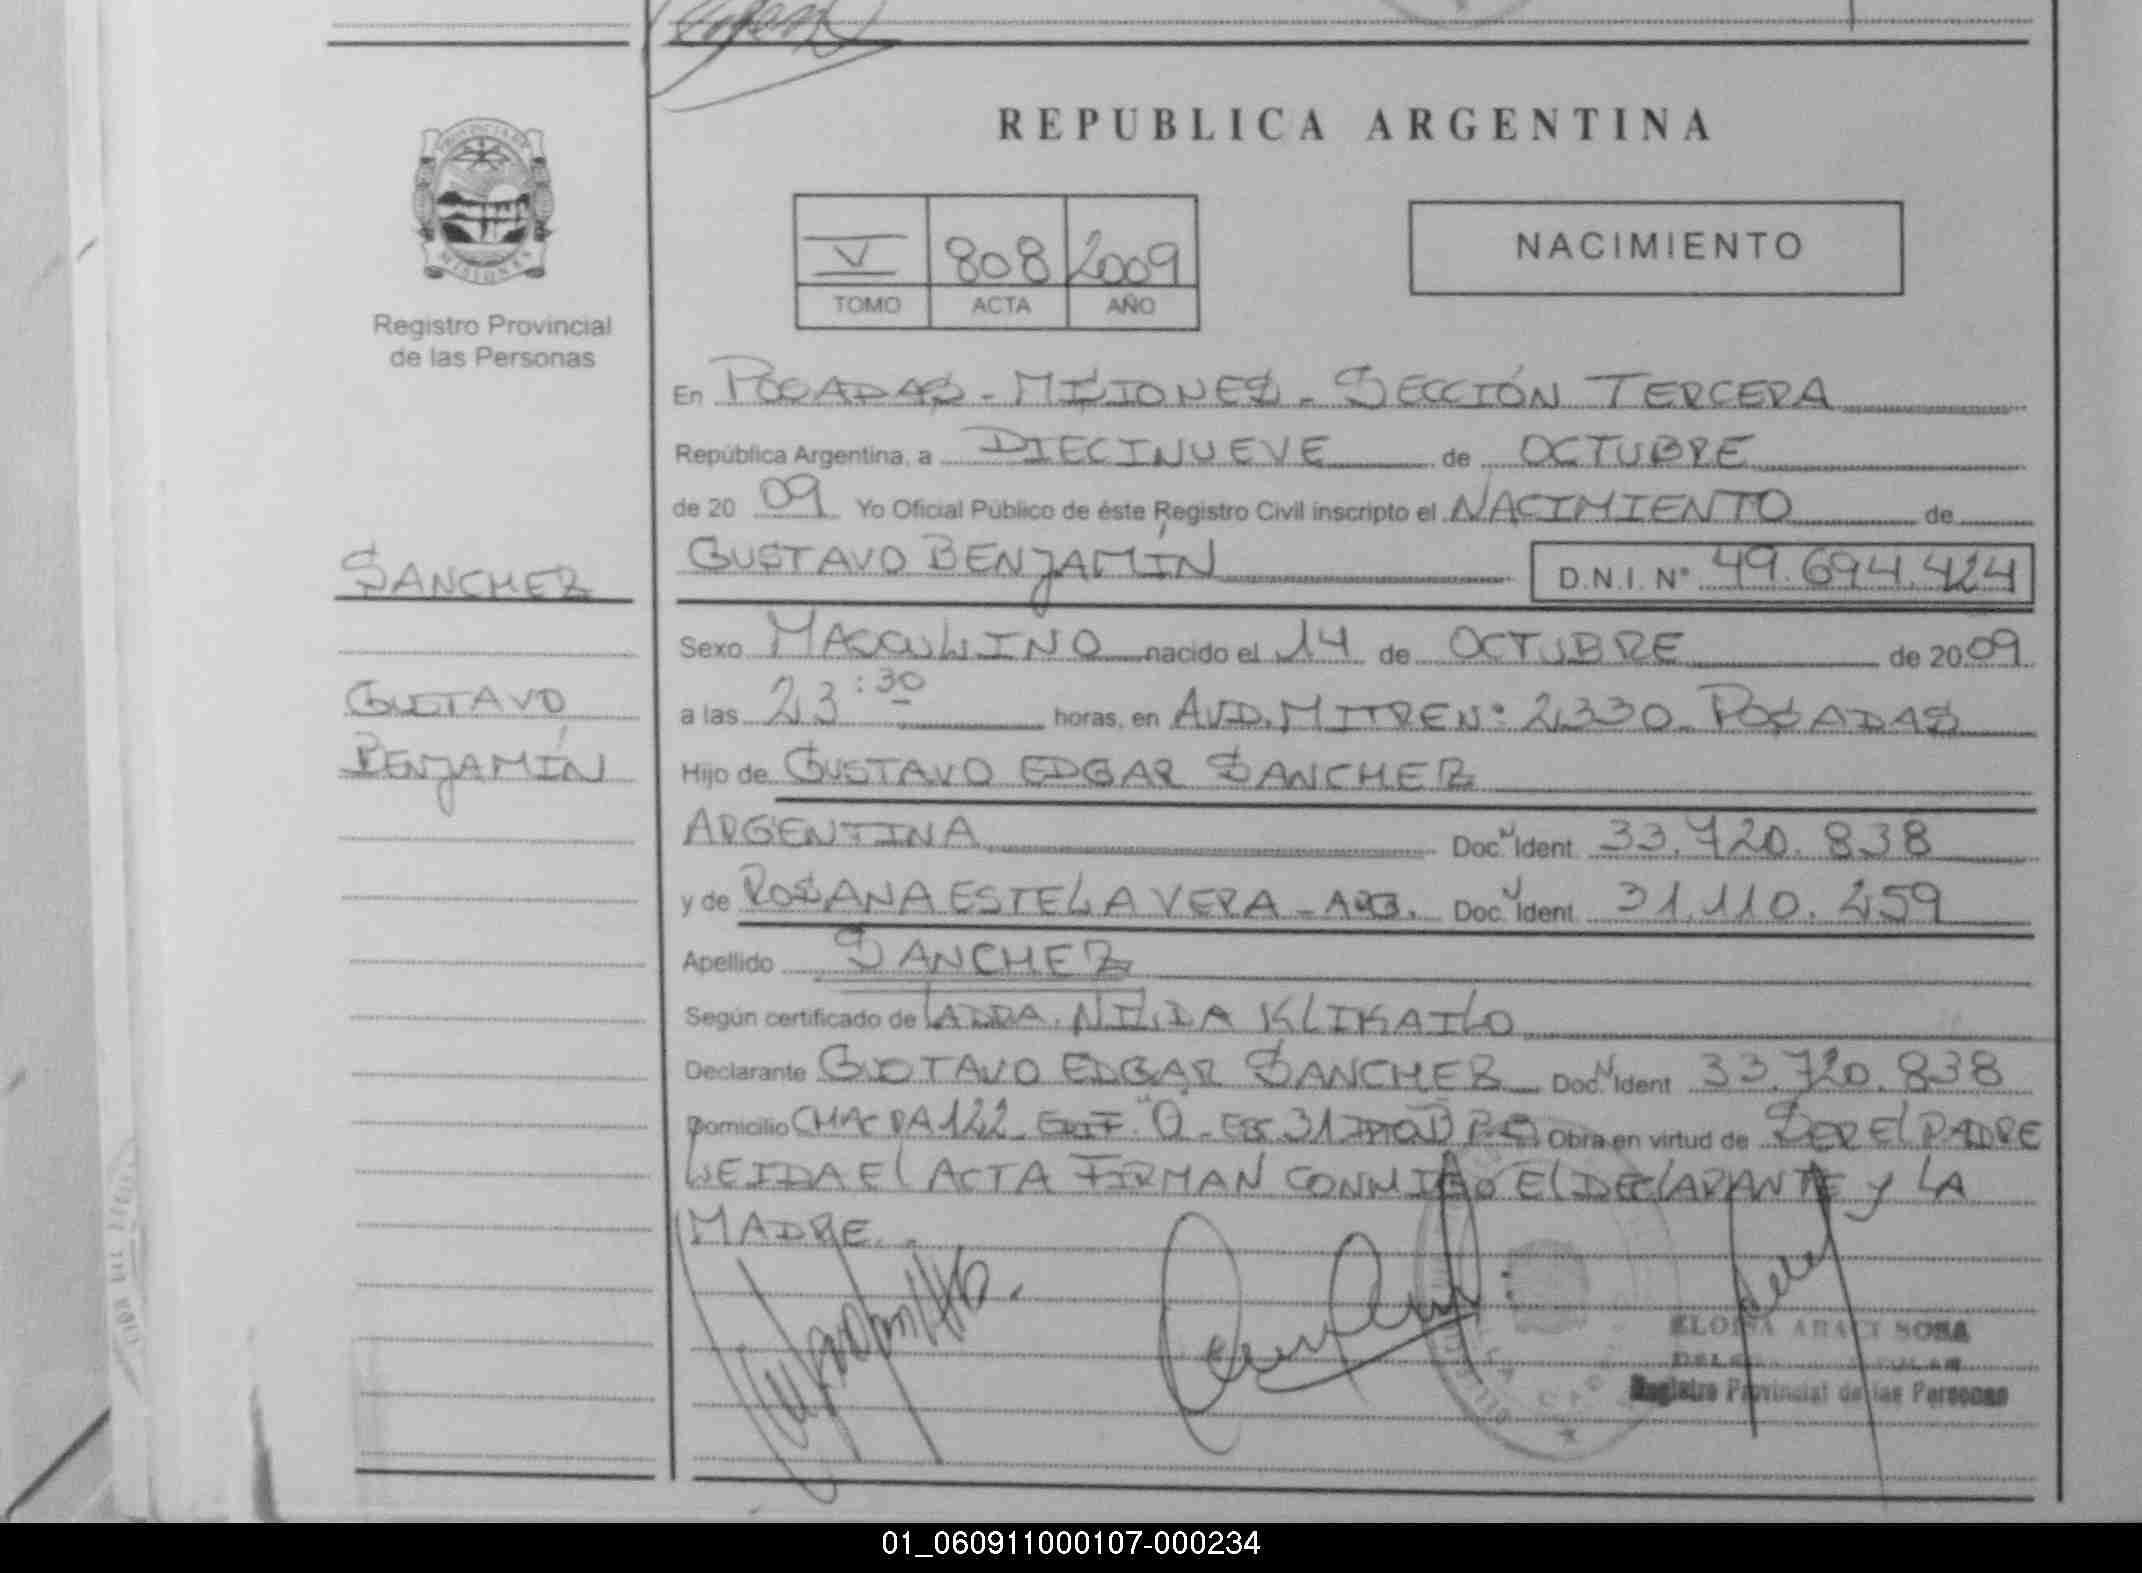 REPUBLICA ARGENTINA
PROVINCIA DE
MISIONES
Registro Provincial
de las Personas
V 808 2009
TOMO ACTA AÑO
NACIMIENTO
En POSADAS - MISIONES - SECCIÓN TERCERA
República Argentina, a DIECINUEVE de OCTUBRE
de 20 09 Yo Oficial Público de éste Registro Civil inscripto el NACIMIENTO de
SANCHEZ
GUSTAVO BENJAMÍN D.N.I. Nº 49.694.424
Sexo MASCULINO nacido el 14 de OCTUBRE de 20 09
GUSTAVO
a las 23:30 horas, en AVD. MITRE Nº 2330 - POSADAS
BENJAMÍN
Hijo de GUSTAVO EDGAR SANCHEZ
ARGENTINA Doc. N Ident 33.720.838
y de ROSANA ESTELA VERA - ARG. Doc. N Ident 31.110.259
Apellido SANCHEZ
Según certificado de LADRA. NILDA KLIKAILO
Declarante GUSTAVO EDGAR SANCHEZ Doc. N Ident 33.720.838
Domicilio CHACRA 122 - EDIF. "O" - ESC 31 DPTO D Obra en virtud de SER EL PADRE
LEIDA El ACTA FIRMAN CONMIGO El DECLARANTE y LA
MADRE.
ELOISA ARACI SOSA
Registro Provincial de las Personas
01_060911000107-000234